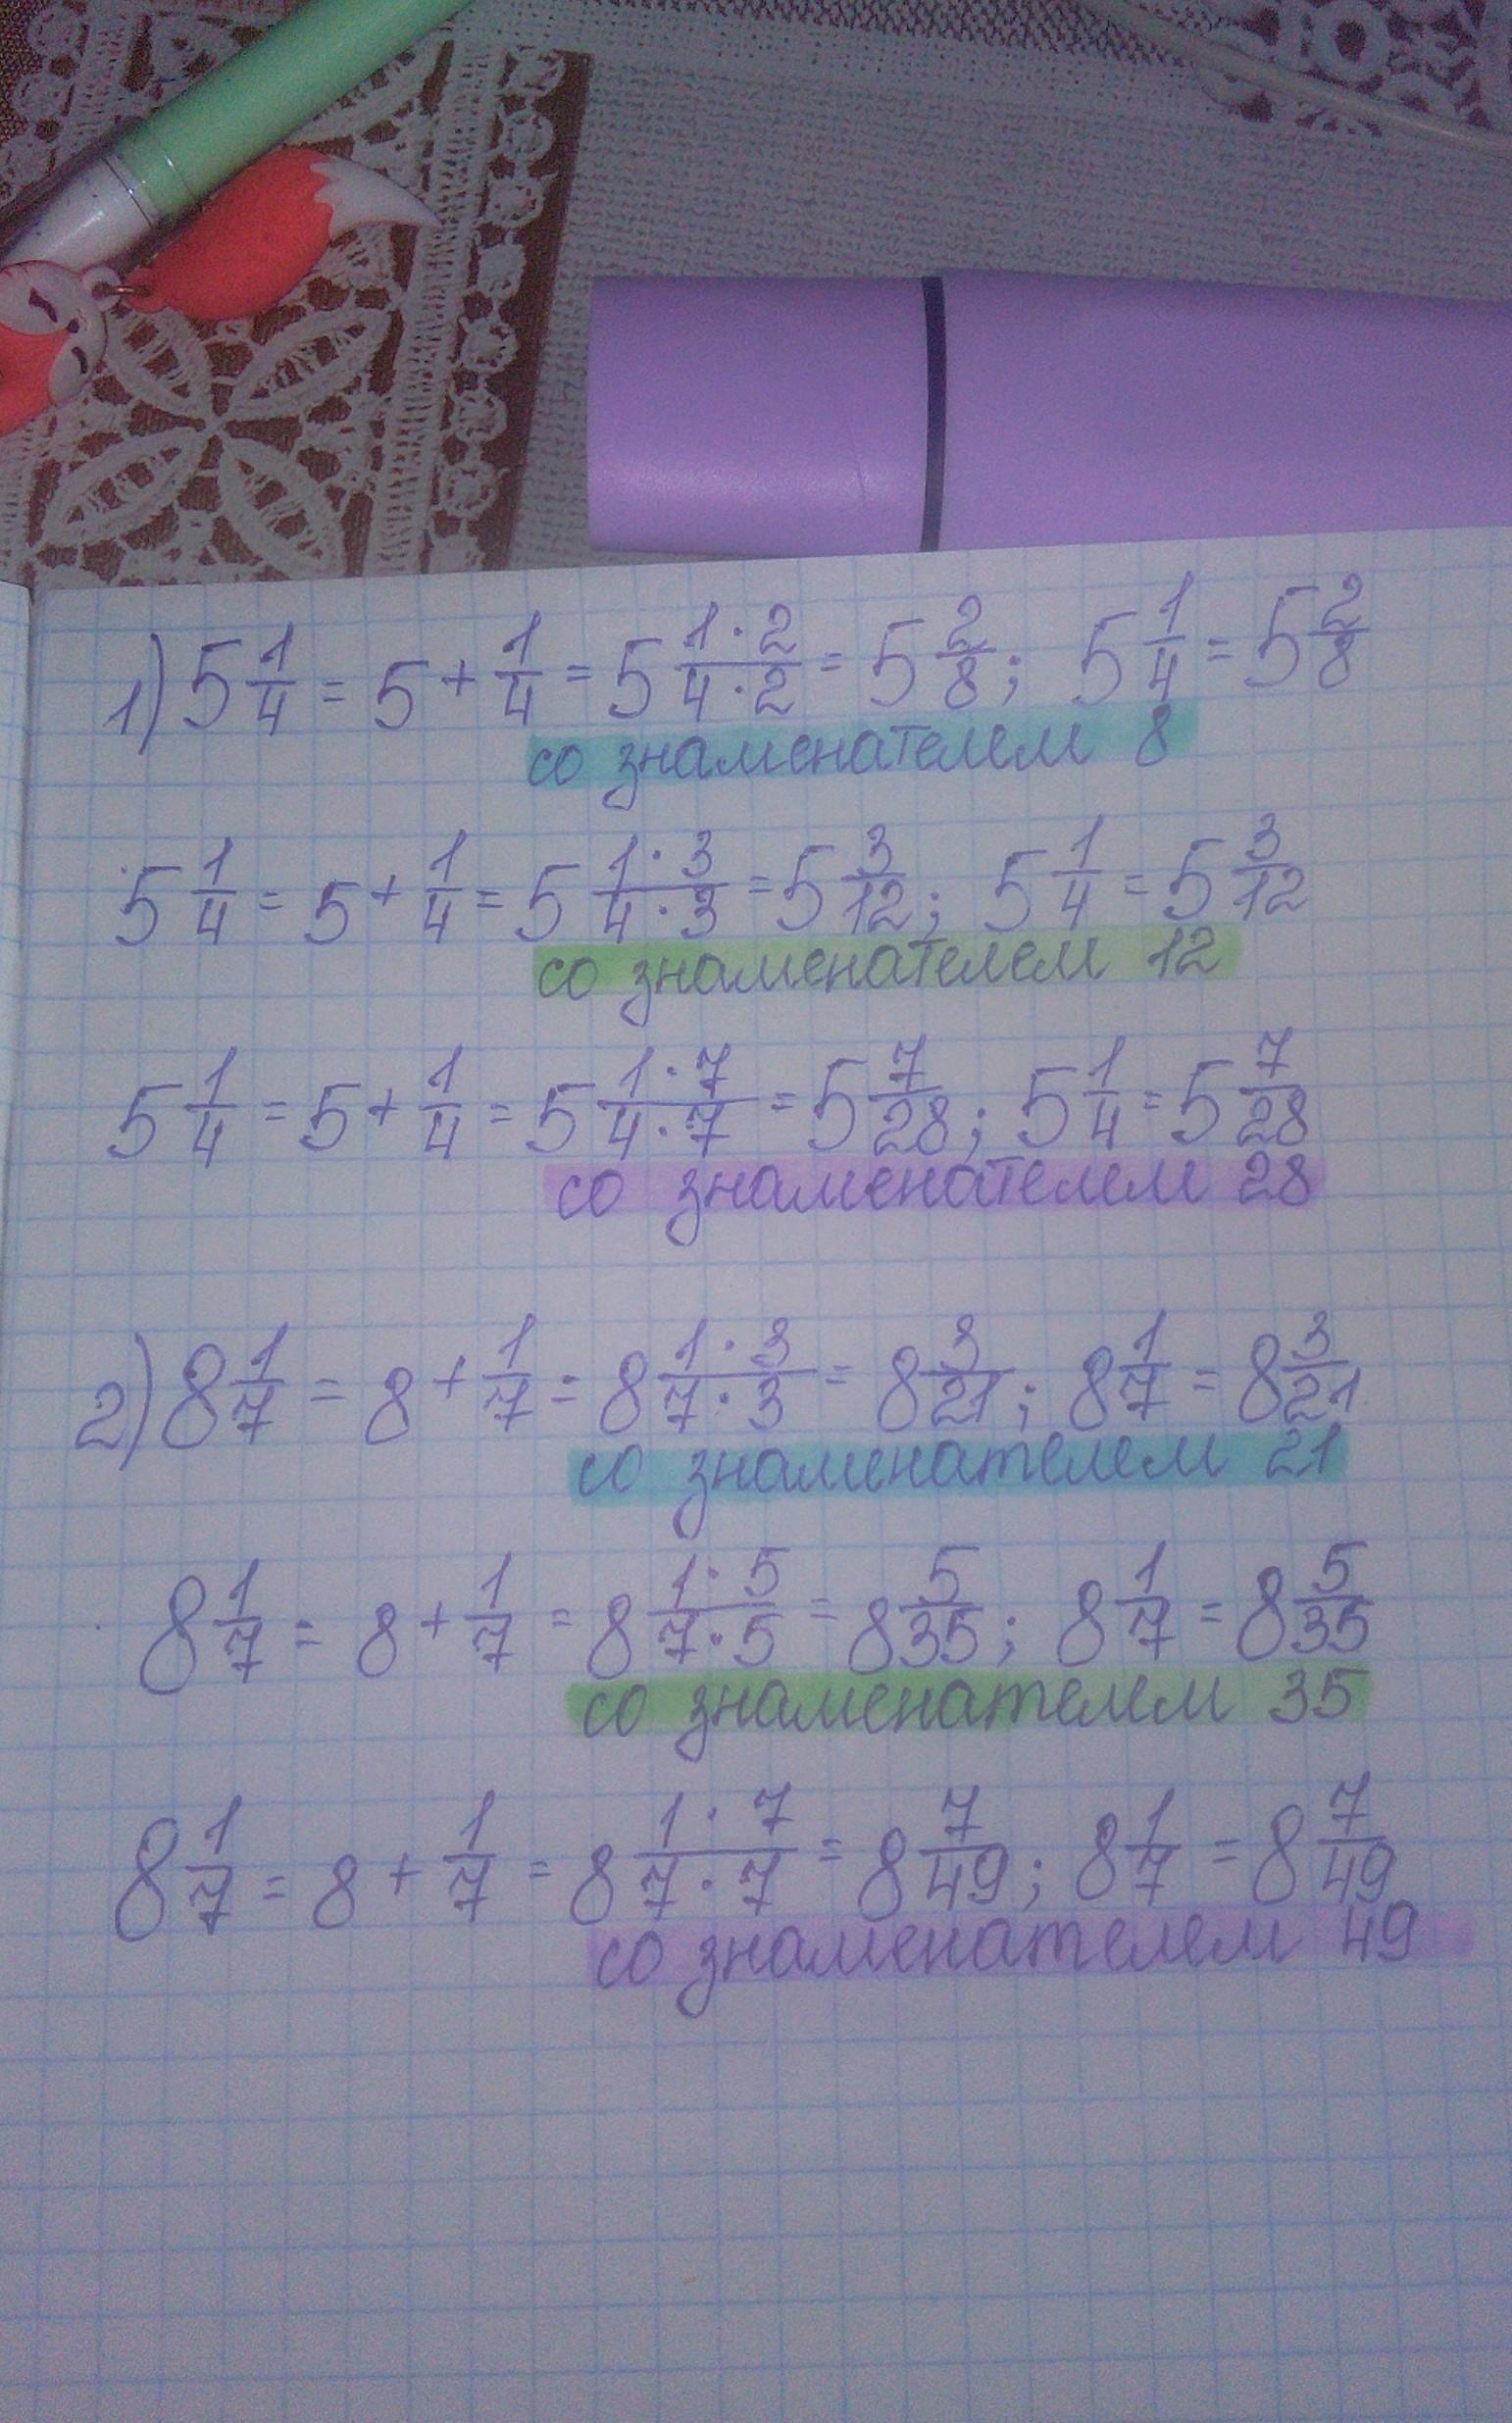 1) 5 1/4 = 5 + 1/4 = 5 1·2/4·2 = 5 2/8; 5 1/4 = 5 2/8
со знаменателем 8
5 1/4 = 5 + 1/4 = 5 1·3/4·3 = 5 3/12; 5 1/4 = 5 3/12
со знаменателем 12
5 1/4 = 5 + 1/4 = 5 1·7/4·7 = 5 7/28; 5 1/4 = 5 7/28
со знаменателем 28
2) 8 1/7 = 8 + 1/7 = 8 1·3/7·3 = 8 3/21; 8 1/7 = 8 3/21
со знаменателем 21
8 1/7 = 8 + 1/7 = 8 1·5/7·5 = 8 5/35; 8 1/7 = 8 5/35
со знаменателем 35
8 1/7 = 8 + 1/7 = 8 1·7/7·7 = 8 7/49; 8 1/7 = 8 7/49
со знаменателем 49